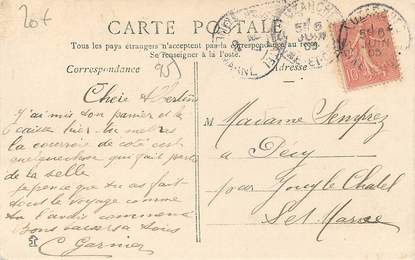 20f
CARTE POSTALE
Tous les pays étrangers n'acceptent pas la Correspondance au recto.
Se renseigner à la Poste.
Correspondance
Adresse
Chère Albertine
J'ai mis ton panier et la
caisse hier. tu mettras
la courroie de côté c'est
quelque chose qui fait partie
de la selle
je pense que tu as fait
tout le voyage comme
tu l'avais commencé
Bons baisers à tous
C Garnier
M
Madame Semprez
a Decy
par Jouy le Chatel
Set Marne